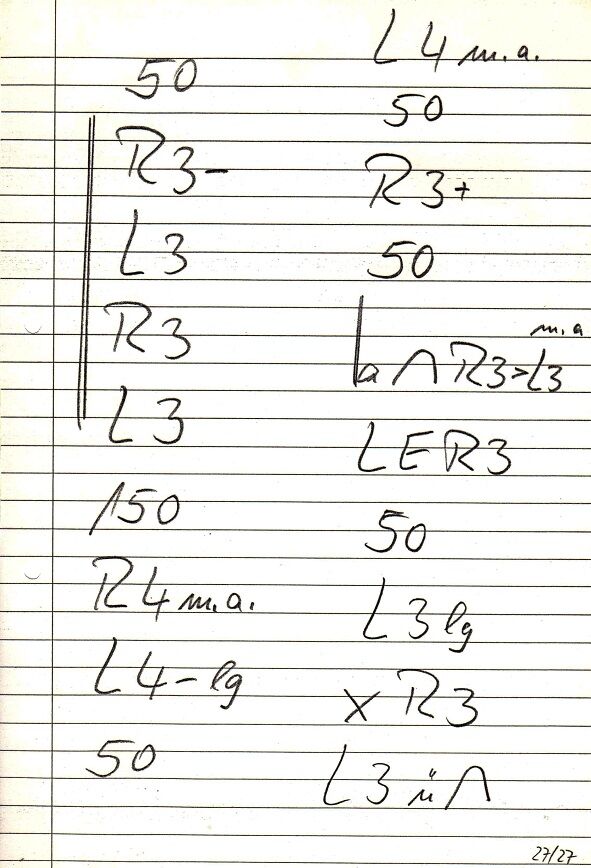 50
R3-
L3
R3
L3
150
R4 m.a.
L4-lg
50
L4 m.a.
50
R3+
50
m.a
a ∩ R3>L3
LER3
50
L3 lg
x R3
L3 ü ∩
27/27